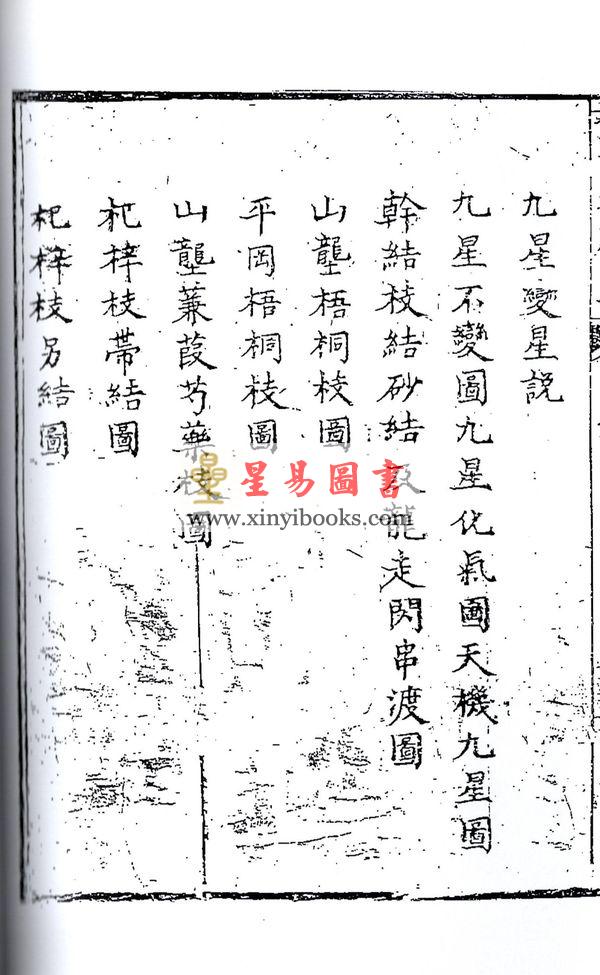 九星變星説
九星不變圖九星化氣圖天機九星圖
幹結枝結砂結及龍走閃串渡圖
山壟梧桐枝圖
平岡梧桐枝圖
山壟蒹葭芍藥枝圖
杞梓枝帶結圖
杞梓枝另結圖
星易圖書
www.xinyibooks.com